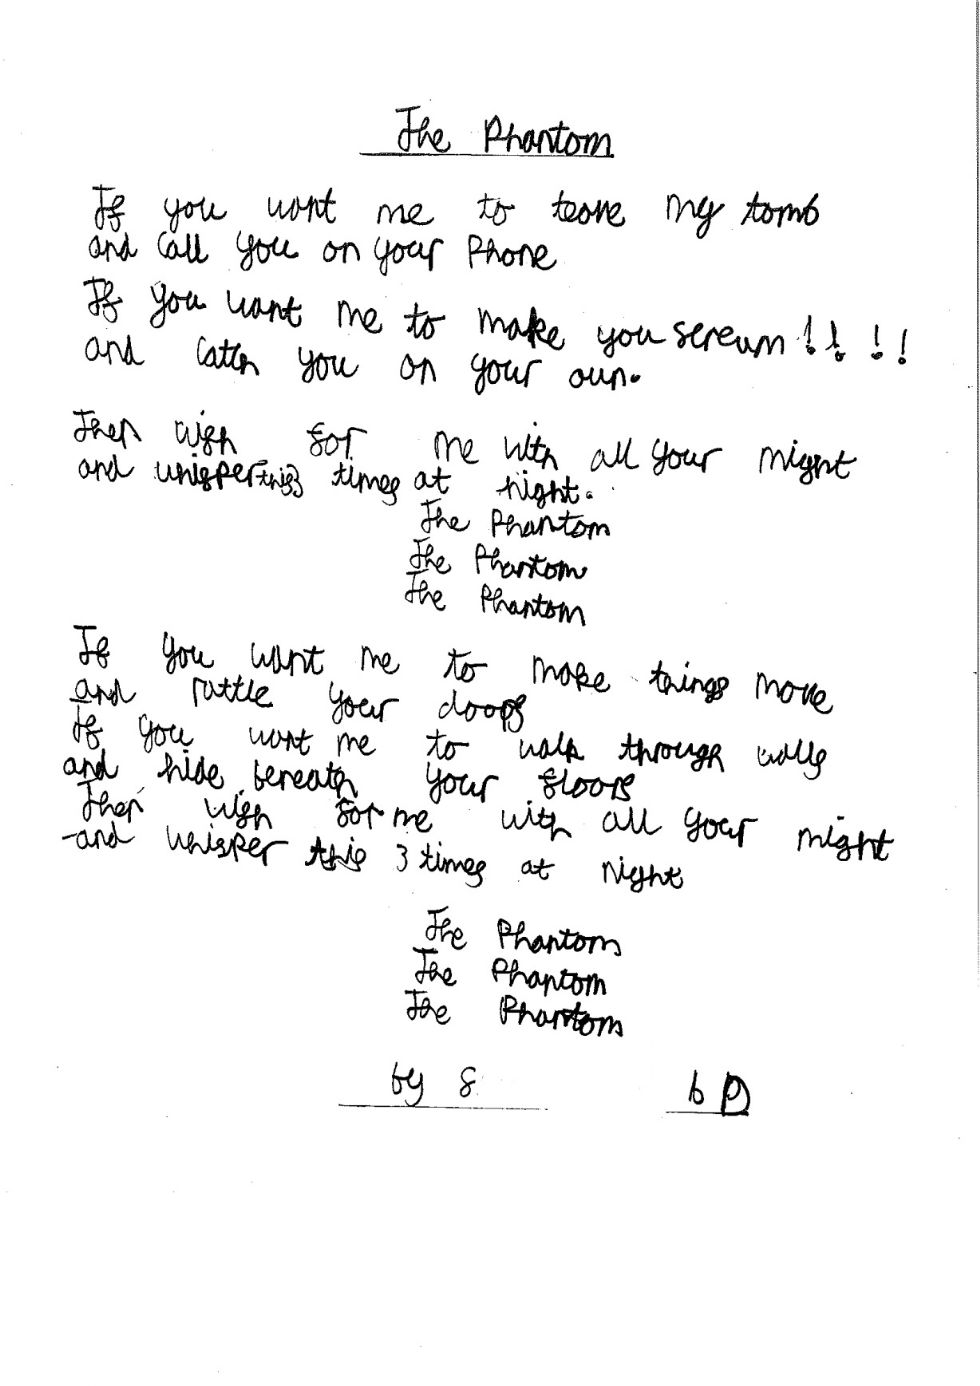 The Phantom
If you want me to leave my tomb
and Call you on your Phone
If you want me to make you scream!! !!
and catch you on your own.
Then wish for me with all your might
and whisper this 3 times at night.
The Phantom
The Phantom
The Phantom
If you want me to make things move
and rattle your doors
If you want me to walk through walls
and hide beneath your floors
Then wish for me with all your might
and whisper this 3 times at Night
The Phantom
The Phantom
The Phantom
by S 6 D